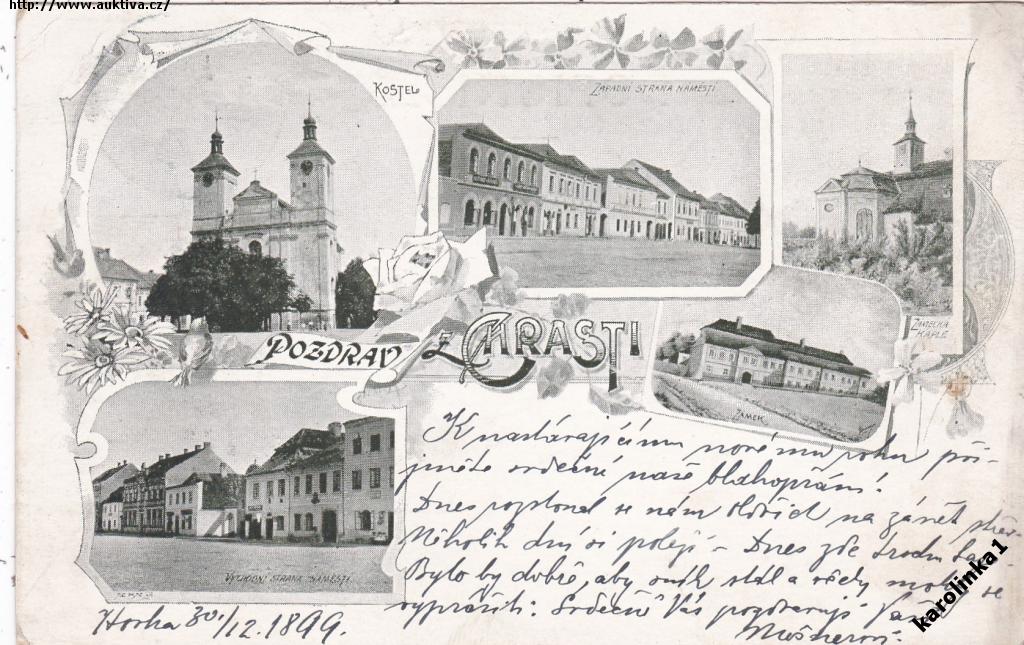 http://www.auktiva.cz/
KOSTEL
ZÁPADNÍ STRANA NÁMĚSTÍ
ZÁMECKÁ
KAPLE
POZDRAV Z CHRASTI
ZÁMEK
VÝCHODNÍ STRANA NÁMĚSTÍ.
K nastávajícímu novému roku při-
jměte srdečné naše blahopřání!
Dnes se nám na zánět
Několik dní si poleží – Dnes zde
Bylo by dobře, aby sník stál a vždy se
Srdečně Vás pozdravují
Horka 30./12. 1899.
karolinka1